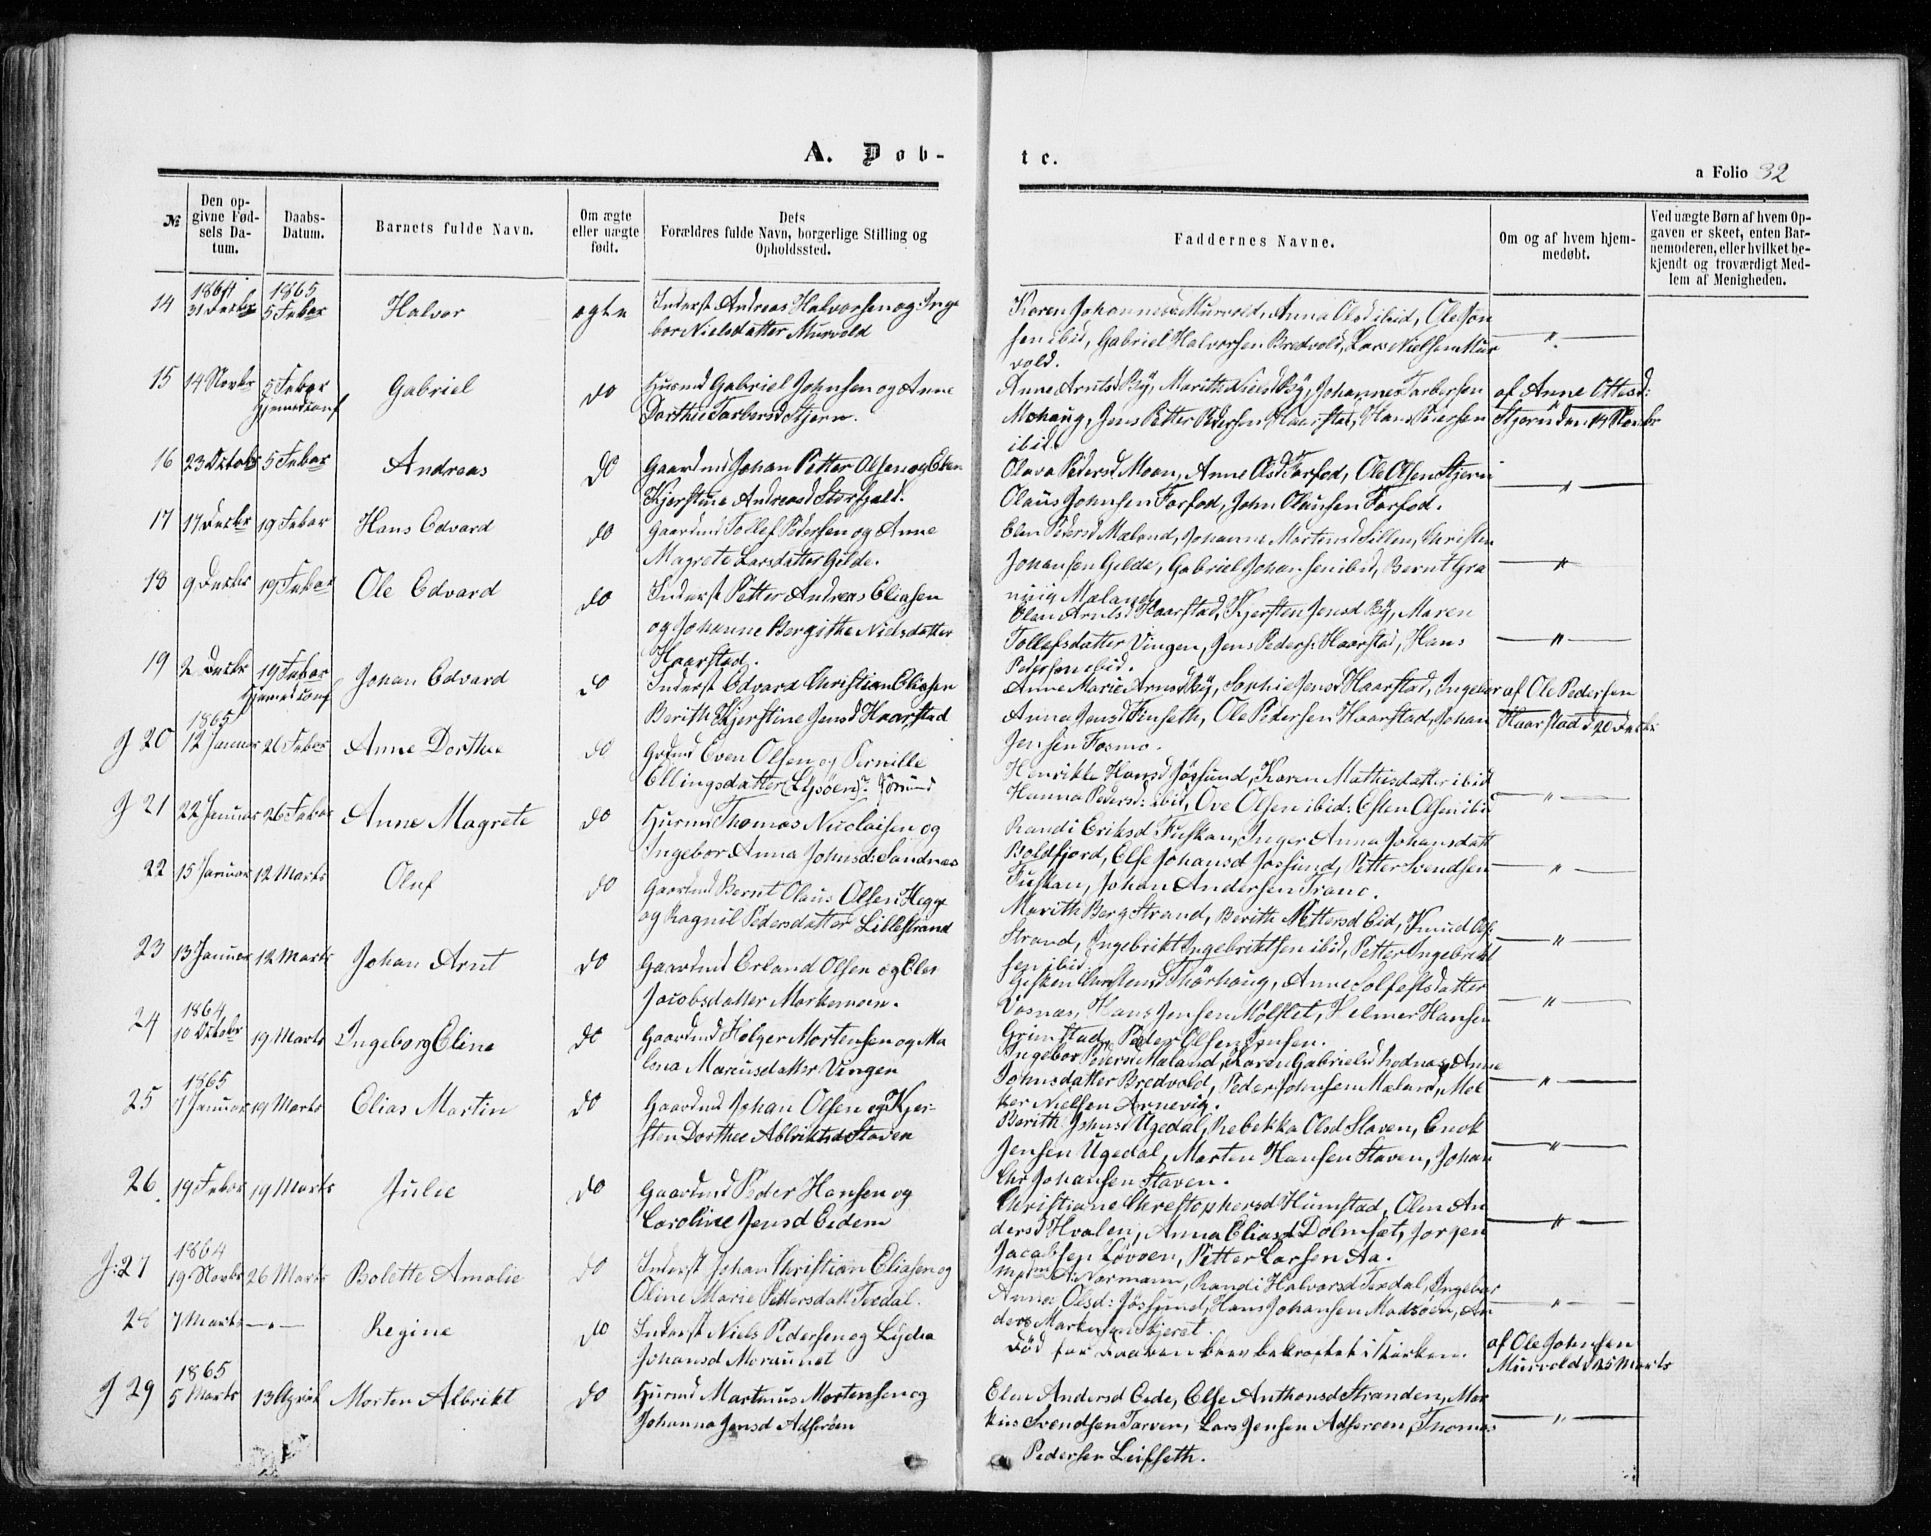 A. Dob-
te.
a Folio 32
№
Den op-
givne Fød-
sels Da-
tum.
Daabs-
Datum.
Barnets fulde Navn.
Om ægte
eller uægte
født.
Dets
Forældres fulde Navn, borgerlige Stilling og
Opholdssted.
Faddernes Navne.
Om og af hvem hjem-
medøbt.
Ved uægte Børn af hvem Op-
gaven er skeet, enten Bar-
nemoderen, eller hvilket be-
kjendt og troværdigt Med-
lem af Menigheden.
14 1864 31 Decbr 1865 5 Febar Halvor ægte Inderst Andreas Halvorsen og Inge
bor Nielsdatter Murvold
Karen Johannesd Murvold, Anna Olsd ibid, Ole John
sen ibid, Gabriel Halvorsen Bredvold, Lars Nielsen Mur
vold.
15 14 Novbr 5 Febar Gabriel do Husmd Gabriel Johnsen og Anne
Dorthe Tarbersd Stjern.
Anne Arntsd By, Marith Nielsd By, Johannes Tarbersen
Mohaug, Jens Petter Pedersen Haarstad, Hans Pedersen
ibid.
af Anne Ottesd:
Stjern den 14 Novbr
16 23 Octobr 5 Febar Andreas do Gaardmd Johan Petter Olsen og Elen
Kjerstine Andreasd Storfjeld.
Olava Pedersd Moan, Anne Olsd Farfod, Ole Olsen Stjern
Olaus Johnsen Farfod, John Olausen Farfod.
17 17 Decbr 19 Febar Hans Edvard do Gaardmd Tollef Pedersen og Anne
Magrete Larsdatter Gilde.
Elen Pedersd Mæland, Johanne Martinsd Sillen, Christen
Johansen Gilde, Gabriel Johansen ibid, Bernt Gra
ning Mæland
18 9 Decbr 19 Febar Ole Edvard do Inderst Petter Andreas Eliasen
og Johanne Bergithe Nielsdatter
Haarstad.
Olava Arntsd Haarstad, Kjersten Jensd By, Maren
Tollefsdatter Vingen, Jens Peders: Haarstad, Hans
Pedersen ibid.
19 2 Decbr 19 Febar Johan Edvard do Inderst Edvard Christian Eliasen
Berith Kjerstine Jensd Haarstad
Anne Marie Arntsd By, Sophie Jensd Haarstad, Ingebor
Anna Jensd Finseth, Ole Pedersen Haarstad, Johan
Jensen Fosmo.
af Ole Pedersen
Haarstad d 20 Decbr
J 20 1865 12 Januar 26 Febar Anne Dorthee do Grdmd Even Olsen og Pernille
Ellingsdatter (Lysøen)
Henrikke Hansd Jøssund, Karen Mathisdatter ibid
Hanna Pedersd: ibid, Ove Olsen ibid: Esten Olsen ibid
J 21 22 Januar 26 Febar Anne Magrete do Husmd Thomas Nicolaisen og
Ingebor Anna Johnsd: Sandnæs
Randi Eriksd Fuskan, Inger Anna Johansdatt
Boldfjord, Else Johansd Jossund, Petter Svendsen
Fuskan, Johan Andersen Trane.
22 15 Januar 12 Marts Oluf do Gaardmd Bernt Olaus Olsen Hegge
og Ragnil Pedersdatter Lillestrand
Marith Berg Strand, Berith Pettersd Eid, Knud Ols
Strand, Ingebrikt Ingebriktsen ibid, Petter Ingebrikt
sen ibid.
23 13 Januar 12 Marts Johan Arnt do Gaardmd Erland Olsen og Elen
Jacobsdatter Markemoen.
Gisken Christensd Thørhoug, Anne Solfestsdatter
Vosnæs, Hans Jensen Kolstet, Helmer Hansen
Grimstad, Peder Olsen
24 1864 10 Octobr 19 Marts Ingeborg Eline do Gaardmd Holger Mortensen og Ma
lena Marcusdatter Vingen
Ingebor Pedersd Mæland, Karen Gabrielsd hodnæs, Anne
Johnsdatter Bredvold, Peder Johnsen Mæland, Mol
ker Nielsen Arnevig.
25 1865 7 Januar 19 Marts Elias Martin do Gaardmd Johan Olsen og Kjer-
sten Dorthee Albriktsd Staven
Berith Johnsd Ugedal, Rebekka Olsd Staven, Enok
Jensen Ugedal, Morten Hansen Staven, Johan
Chr Johansen Staven.
26 19 Febar 19 Marts Julie do Gaardmd Peder Hansen og
Caroline Jensd Eidem
Christiane Christophersd Humstad, Olen An
dersd Hvalen, Anna Eliasd Dolmsæt, Jørgen
Jacobsen Løvøen, Petter Larsen Aa.
J: 27 1864 19 Novbr 26 Marts Bolette Amalie do Inderst Johan Christian Eliasen og
Oline Marie Pettersdatt Terdal.
A: Normann, Randi Halvorsd Terdal, Ingebor
Anna Olsd: Jøssund, Hans Johansen Madsøen, An
ders Markussen Skjeret.
28 7 Marts Regine do Inderst Niels Pedersen og Lydia
Johansd Moraunet
Død før Daaben blev bekræftet i Kirken.
af Ole Johnsen
Murvold d 25 Marts
J 29 1865 5 Marts 13 April Morten Albrikt do Husmd Martinus Mortensen og
Johanna Jensd Adserøen
Elen Andersd Eide, Else Anthonsd Stranden, Mar
kus Svendsen Tarven, Lars Jensen Adserøen, Thomas
Pedersen Leifseth.